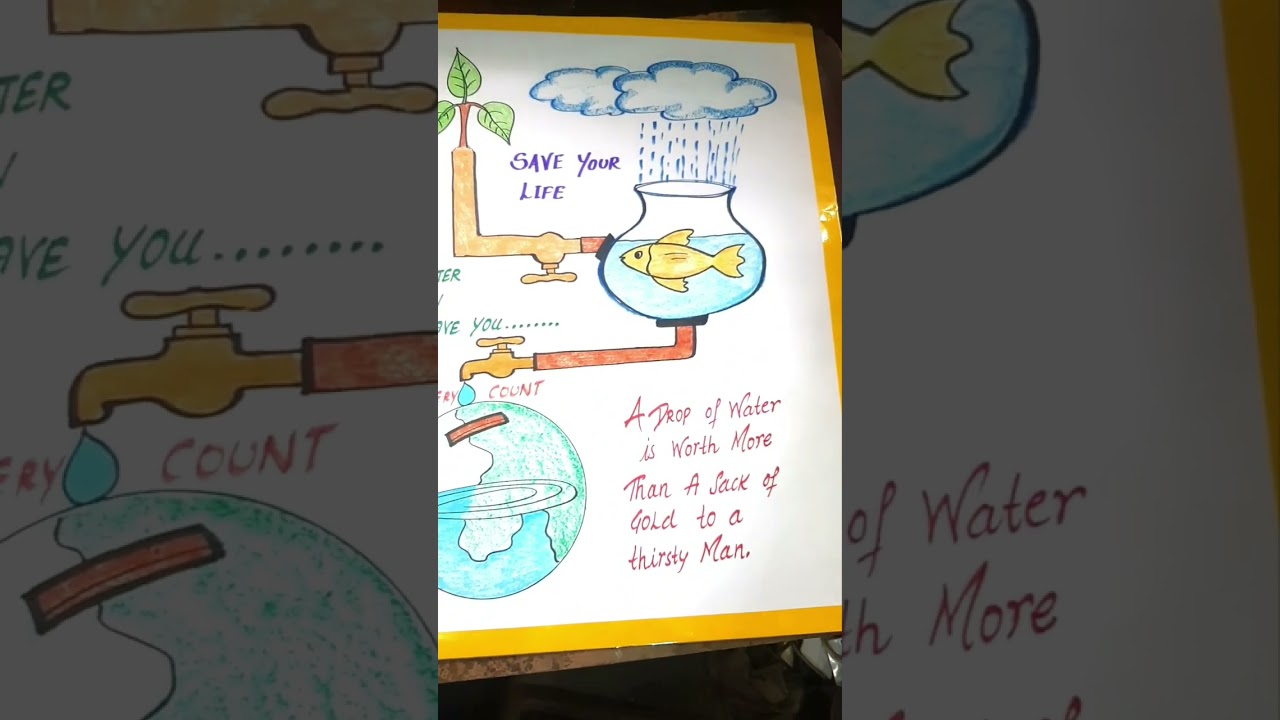 SAVE YOUR
LIFE
TER
AVE YOU........
ERY COUNT
A Drop of Water
is Worth More
Than A Sack of
Gold to a
thirsty Man.